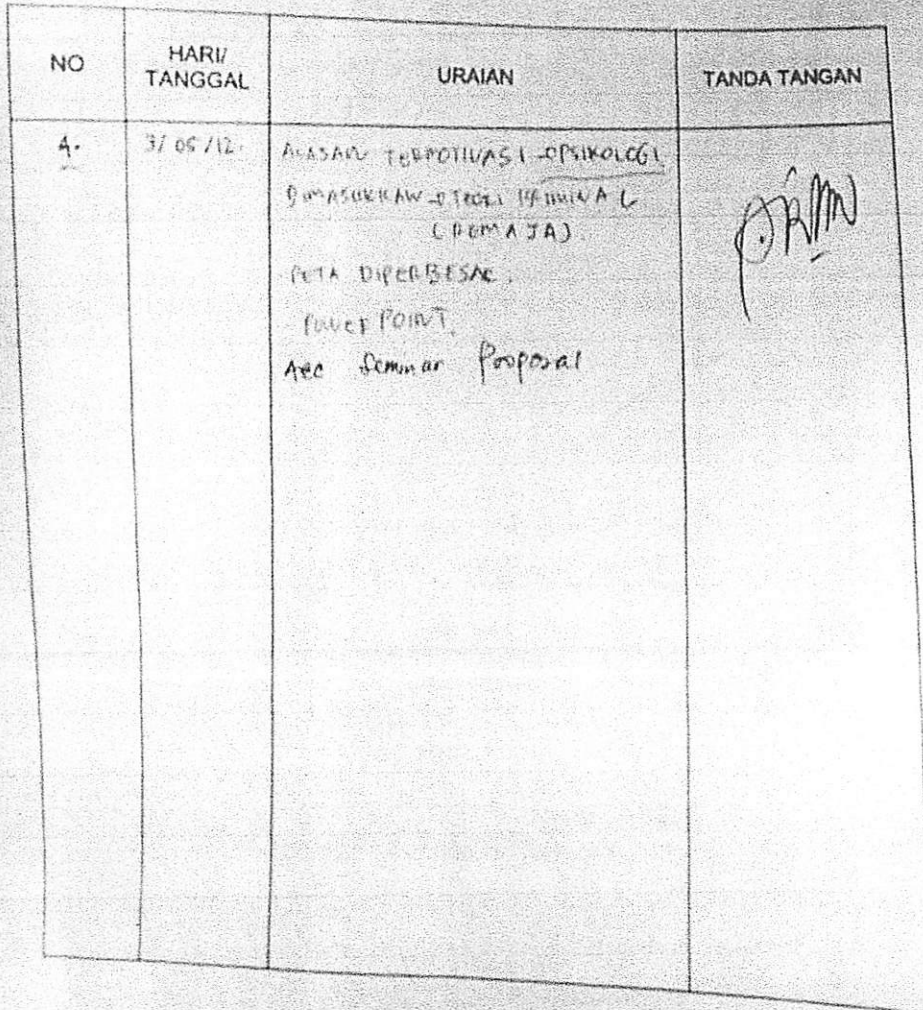 NO
HARI/
TANGGAL
URAIAN
TANDA TANGAN
4.
3/05/12.
ALASAN TERMOTIVASI PSIKOLOGI
DIMASUKKAN TEORI
(REMAJA)
PETA DIPERBESAR.
POWER POINT.
Acc Seminar Proposal